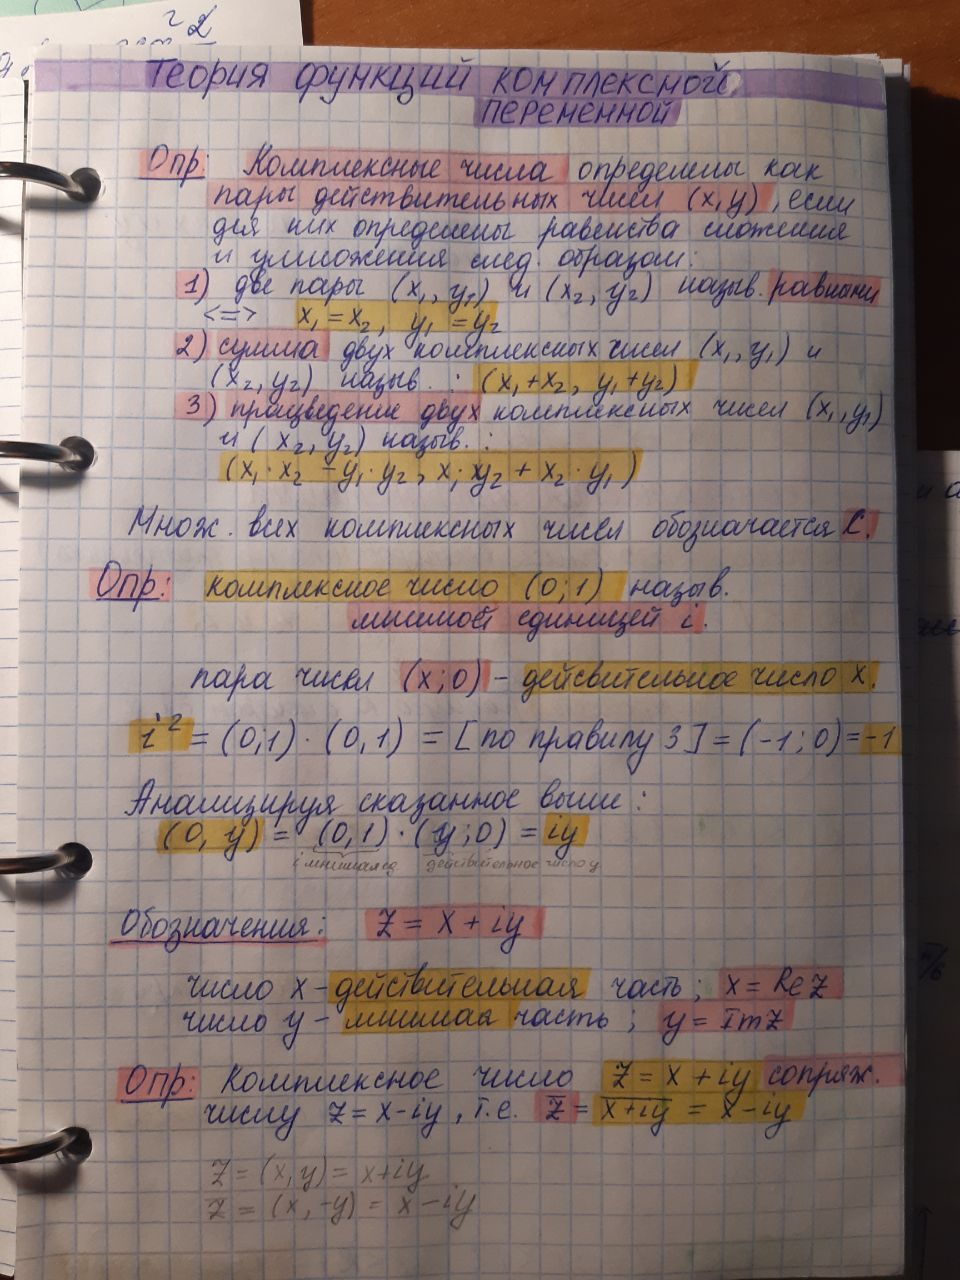 Теория функций комплексной
переменной
Опр: Комплексные числа определены как
пары действительных чисел (x,y), если
для них определены равенства сложения
и умножения след. образом:
1) две пары (x₁, y₁) и (x₂, y₂) назыв. равными
<=> x₁ = x₂, y₁ = y₂
2) сумма двух комплексных чисел (x₁, y₁) и
(x₂, y₂) назыв. : (x₁+x₂, y₁+y₂)
3) працведение двух комплексных чисел (x₁, y₁)
и (x₂, y₂) назыв. :
(x₁·x₂ - y₁·y₂, x₁·y₂ + x₂·y₁)
Множ. всех комплексных чисел обозначается C.
Опр: комплексное число (0;1) назыв.
мнимой единицей i.
пара чисел (x;0) - действительное число x.
i² = (0,1)·(0,1) = [по правилу 3] = (-1;0) = -1
Анализируя сказанное выше:
(0, y) = (0,1)·(y;0) = iy
i мнимая ед. действительное число y
Обозначения: z = x + iy
число x - действительная часть; x = Re z
число y - мнимая часть; y = Im z
Опр: Комплексное число z = x + iy сопряж.
числу z = x-iy, т.е. z̅ = \overline{x+iy} = x-iy
z = (x,y) = x+iy
z̅ = (x,-y) = x-iy